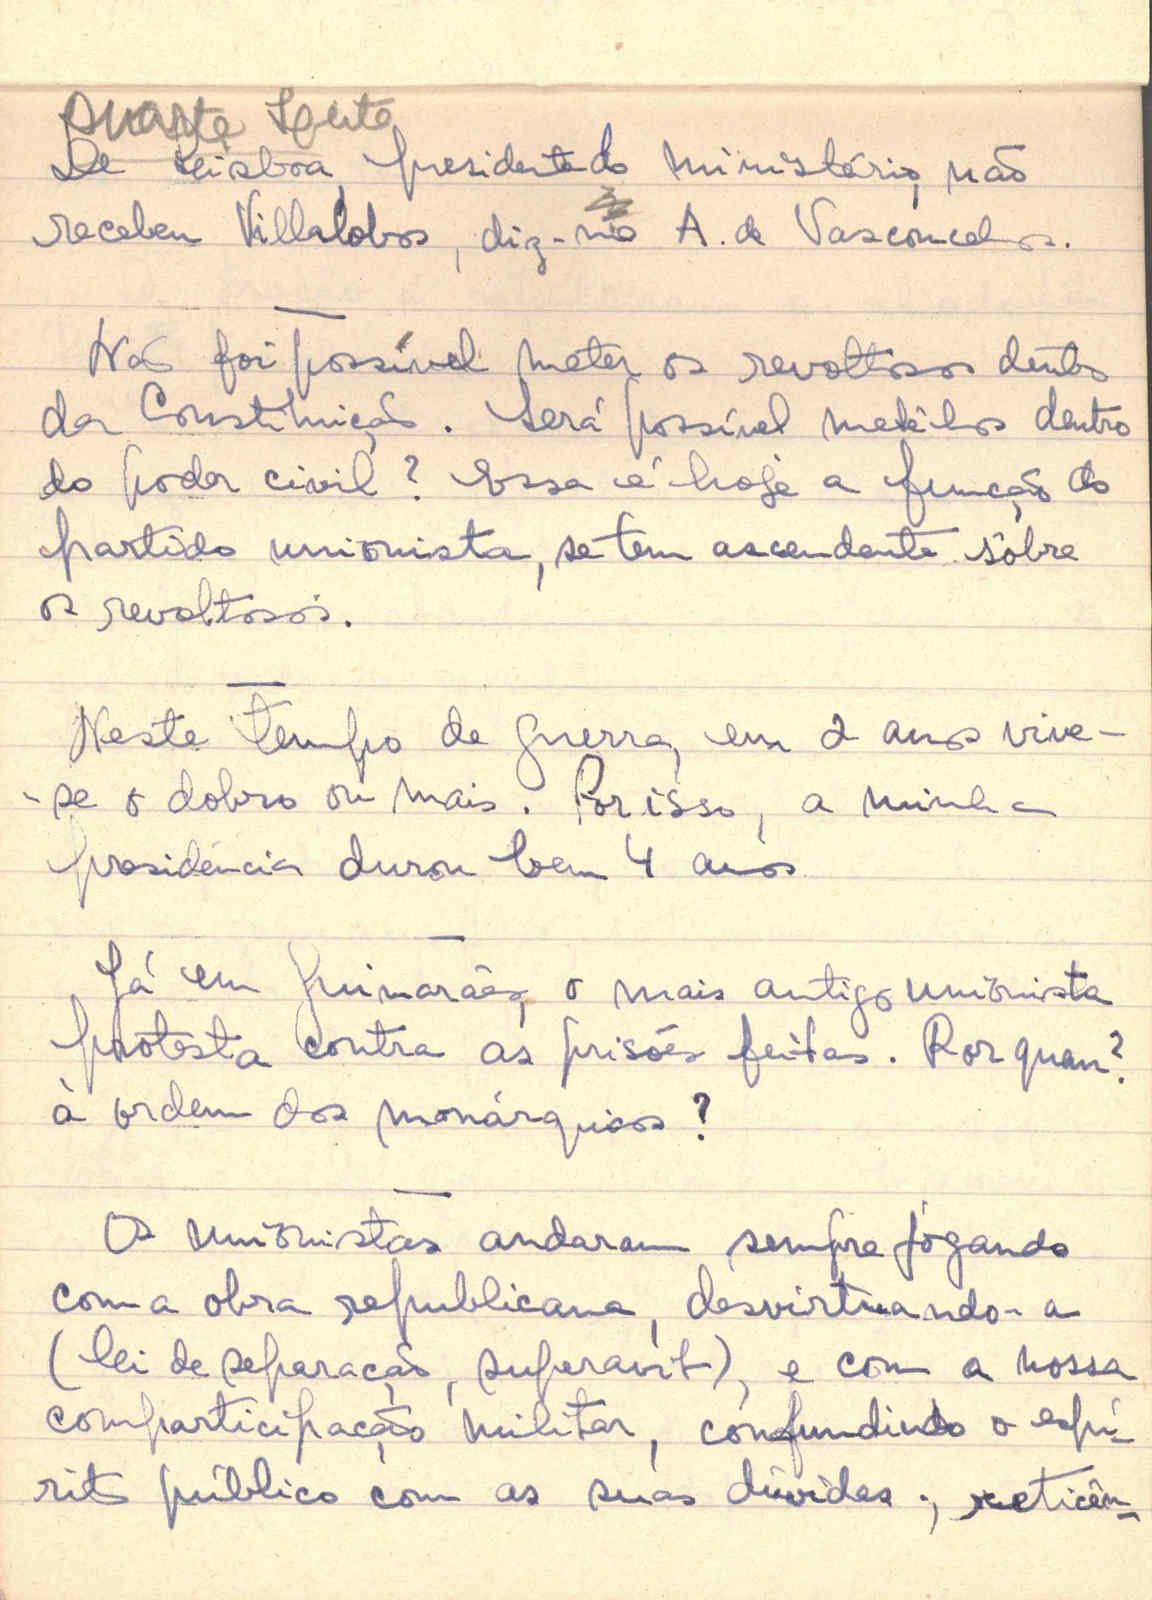 Duarte Leite
De Lisboa, presidente do ministério, não
recebeu Villalobos, diz-no A. de Vasconcelos.
Não foi possível meter os revoltosos dentro
da Constituição. Será possível metê-los dentro
do poder civil? Essa é hoje a função do
partido unionista, se tem ascendente sôbre
os revoltosos.
Neste tempo de guerra, em 2 anos vive-
-se o dobro ou mais. Por isso, a minha
presidência durou bem 4 anos
Já em Guimarães, o mais antigo unionista
protesta contra as prisões feitas. Por quem?
à ordem dos monárquicos?
Os unionistas andaram sempre jogando
com a obra republicana, desvirtuando-a
(lei de separação, superavit), e com a nossa
comparticipação militar, confundindo o espí-
rito público com as suas dúvidas, reticên-